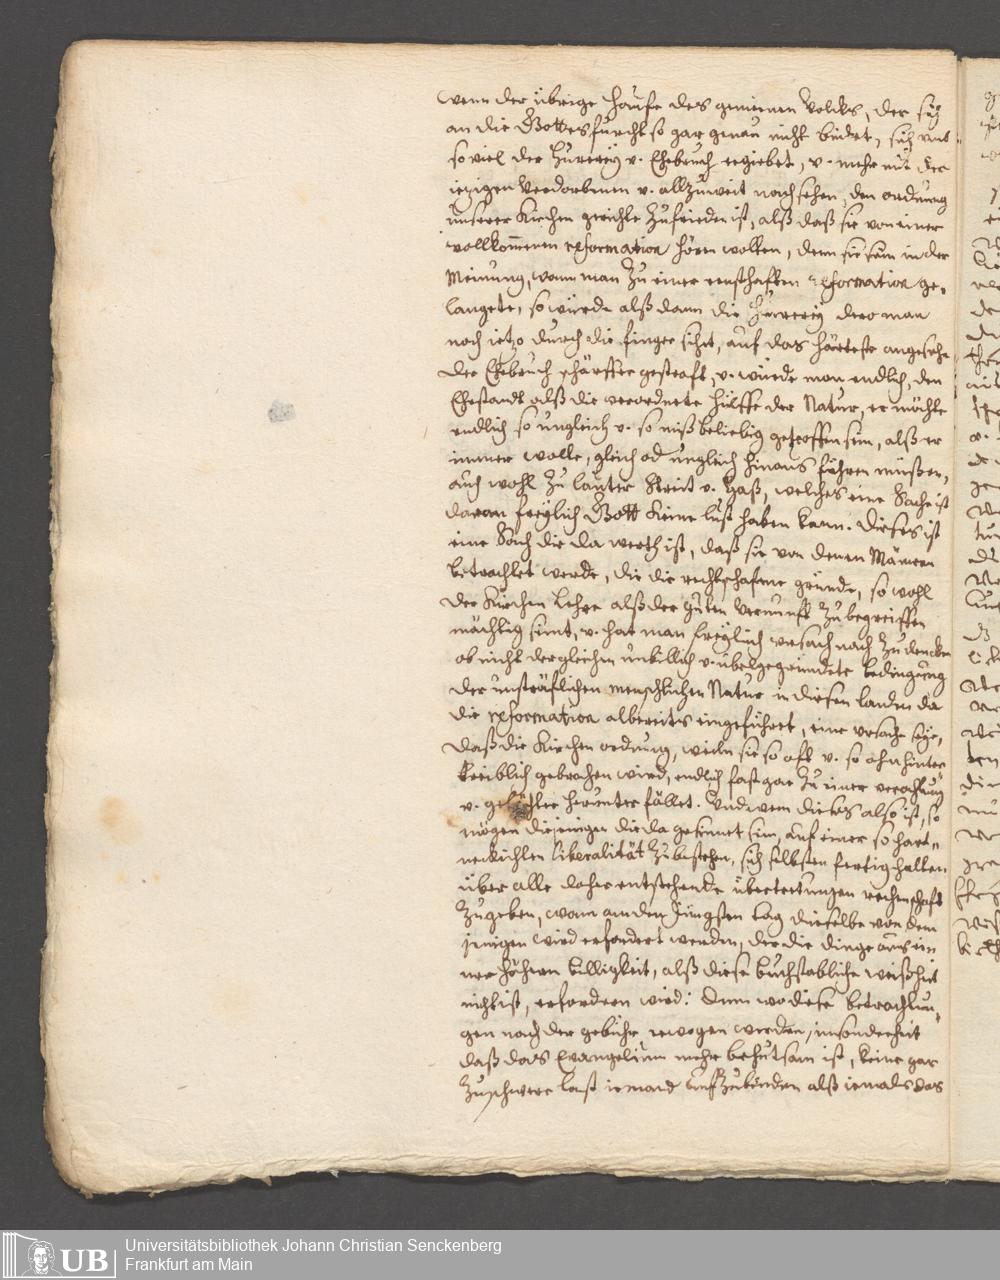 wenn der übrige hauffe des gemeinen Volcks, der sich
an die Gottesfurcht so gar genau nicht bindet, sich umb
so viel der hurerey v. Ehebruch ergiebet, v. mehr mit der
ietzigen Verdorbenen v. allzuweit nachsehenden ordnung
unserer Kirchen gerichte zufrieden ist, alß daß sie von einer
vollkom̄enen reformation hören wolten, denn sie seyn in der
Meinung, wann man zu einer ernsthafften reformation ge-
langete, so würde alß dann die hurerey dero man
noch ietzo durch die finger sihet, auf das härteste angesehen
der Ehebruch schärffer gestraft, v. würde man endlich, den
Ehestandt alß die verordnete hülffe der Natur, er möchte
endlich so ungleich v. so mißbeliebig getroffen seyn, alß er
immer wolle, gleich od ungleich hinaus führen müßen,
auch wohl zu lauter Streit v. haß, welches eine Sache ist
daran freylich Gott keine lust haben kann. Dieses ist
eine Sach die da werth ist, daß sie von denen Männern
betrachtet werde, die die rechtschafene gründe, so wohl
der Kirchen Lehre alß der guten Vernunft zu begreiffen
mächtig seint, v. hat man freylich ursach nach zu dencken
ob nicht dergleichen unbillich v. übelgegründete bedingung
der unsträflichen menschlichen Natur in diesen landen da
die reformation albereits eingeführet, eine ursache seye,
daß die Kirchen ordnung, weiln sie so oft v. so ohnhinter-
treiblich gebrochen wird, endlich fast gar zu einer verachtung
v. gelächter herunter fället. Und wenn dieses also ist, so
mögen diejenigen die da gesinnet sein, auf einer so hart-
neckichten liberalität zu bestehen, sich selbsten fertig halten
über alle daher entstehende übertretungen rechenschaft
zugeben, wann an den Jüngsten tag dieselbe von dem
jenigen wird erfordert werden, der die dinge aus ei-
ner höhern billigkeit, alß diese buchstabliche weißheit
nicht ist, erfordern wird: Denn wo diese betrachtun-
gen nach der gebühr erwogen werden, insonderheit
daß das Evangelium mehr behutsam ist, keine gar
zu schwere last iemand aufzubinden alß iemals das
Universitätsbibliothek Johann Christian Senckenberg
Frankfurt am Main
UB